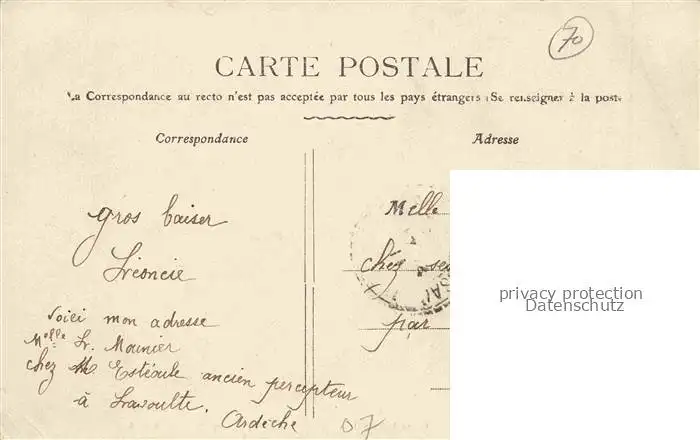 70
CARTE POSTALE
La Correspondance au recto n'est pas acceptée par tous les pays étrangers (Se renseigner à la poste
Correspondance
Adresse
gros baiser
Léoncie
Voici mon adresse
Melle L. Mounier
chez M. Estéoule ancien percepteur
à Lavoulte.
Ardèche
07
Melle
chez
par
privacy protection
Datenschutz